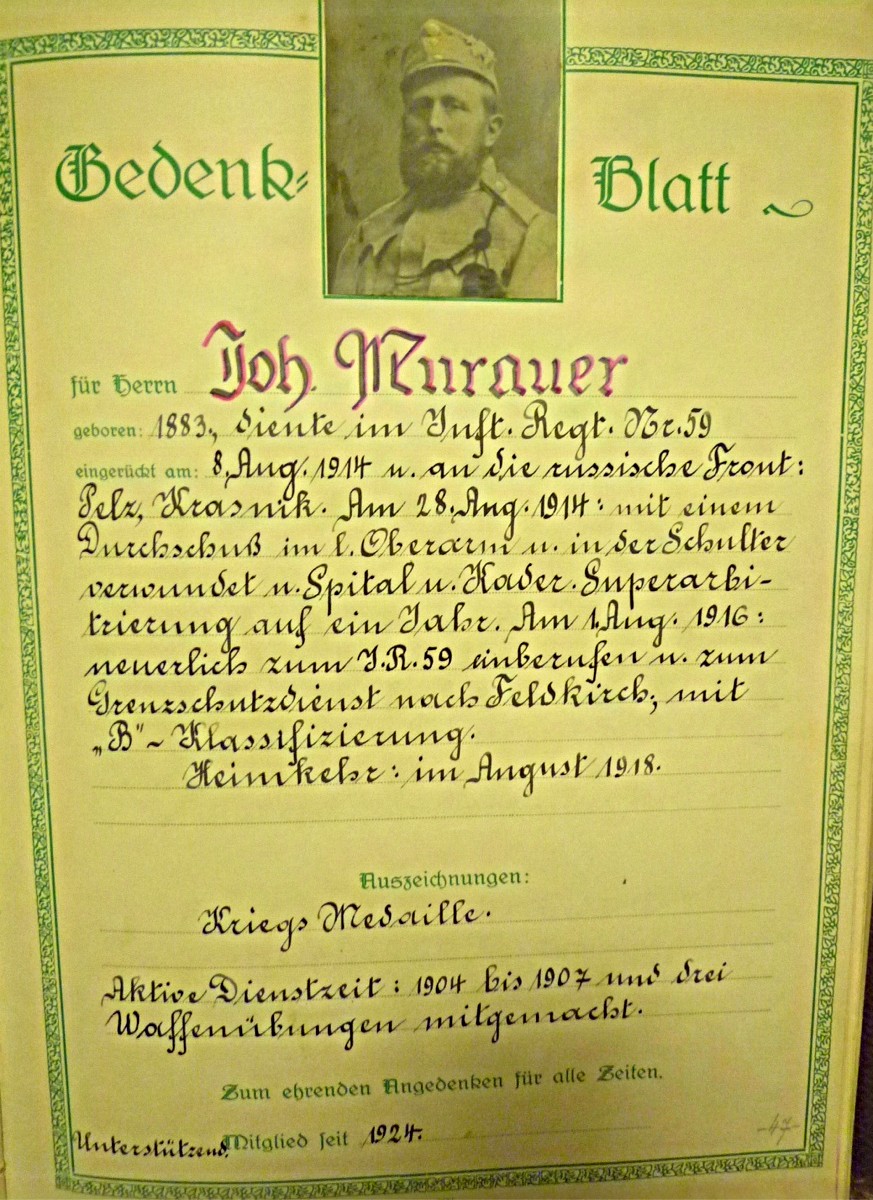 Gedenk= Blatt
für Herrn Joh. Murauer
geboren: 1883., diente im Inft. Regt. Nr. 59
eingerückt am: 8. Aug. 1914 u. an die russische Front:
Pelz, Krasnik. Am 28. Aug. 1914: mit einem
Durchschuß im l. Oberarm u. in der Schulter
verwundet u. Spital u. Kader. Superarbi-
trierung auf ein Jahr. Am 1. Aug. 1916:
neuerlich zum I.R. 59 einberufen u. zum
Grenzschutzdienst nach Feldkirch, mit
„B"- Klassifizierung.
Heimkehr: im August 1918.
Auszeichnungen:
Kriegs Medaille.
Aktive Dienstzeit: 1904 bis 1907 und drei
Waffenübungen mitgemacht.
Zum ehrenden Angedenken für alle Zeiten.
Unterstützend. Mitglied seit 1924.
-47-